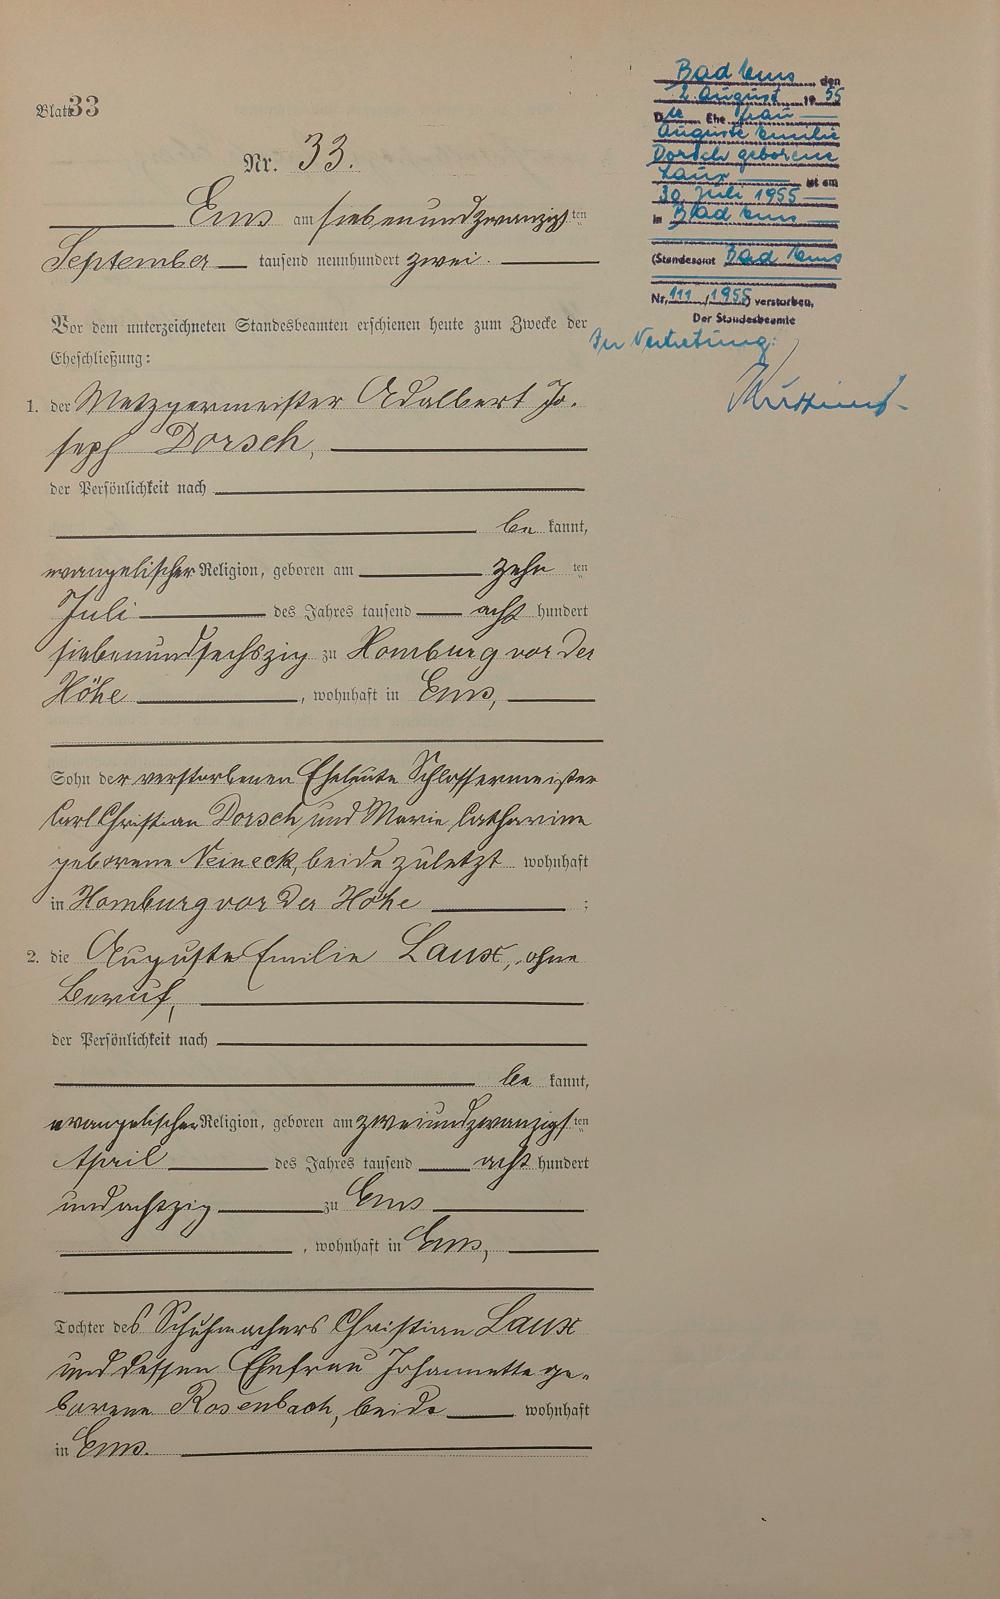 Blatt 33
Nr. 33.
Ems am siebenundzwanzigsten
September tausend neunhundert zwei.
Vor dem unterzeichneten Standesbeamten erschienen heute zum Zwecke der
Eheschließung:
1. der Metzgermeister Adalbert Jo-
seph Dorsch,
der Persönlichkeit nach
be kannt,
evangelischer Religion, geboren am zehn ten
Juli des Jahres tausend acht hundert
siebenundsechszig zu Homburg vor der
Höhe, wohnhaft in Ems,
Sohn der verstorbenen Eheleute Schlossermeister
Carl Christian Dorsch und Marie Catharine
geborene Neineck, beide zuletzt wohnhaft
in Homburg vor der Höhe ;
2. die Auguste Emilie Laux, ohne
Beruf,
der Persönlichkeit nach
be kannt,
evangelischer Religion, geboren am zweiundzwanzigsten
April des Jahres tausend acht hundert
undachtzig zu Ems
, wohnhaft in Ems,
Tochter des Schuhmachers Christian Laux
und dessen Ehefrau Johannette ge-
borene Rosenbach, beide wohnhaft
in Ems.
Bad Ems, den
2. August 1955
Die Ehefrau
Auguste Emilie
Dorsch geborene
Laux ist am
30. Juli 1955
in Bad Ems
(Standesamt Bad Ems
Nr. 111 / 1955) verstorben.
Der Standesbeamte
In Vertretung: